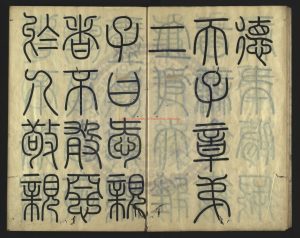 德
天子章弟
二
子曰愛親
者不敢惡
於人敬親